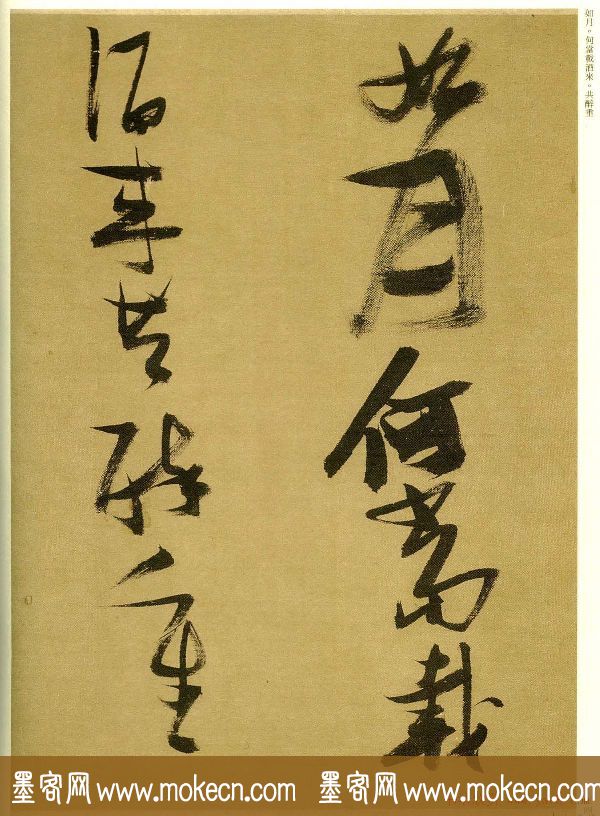 如月何當載
酒来共醉重
如月。何當載酒來。共醉重
墨客网 www.mokecn.com 墨客网 www.mokecn.com